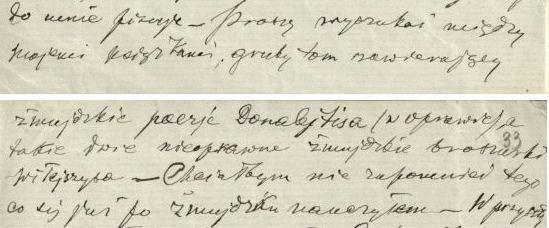 do mnie pisuje – Proszę wyszukać między
mojemi książkami, gruby tom zawierający
żmujdzkie poezje Donalejtisa (w oprawie) a
także dwie nieoprawne żmujdzkie broszurki
33
Wilejszysa – Chciałbym nie zapomnieć tego
co się już po żmujdzku nauczyłem – W przyszły